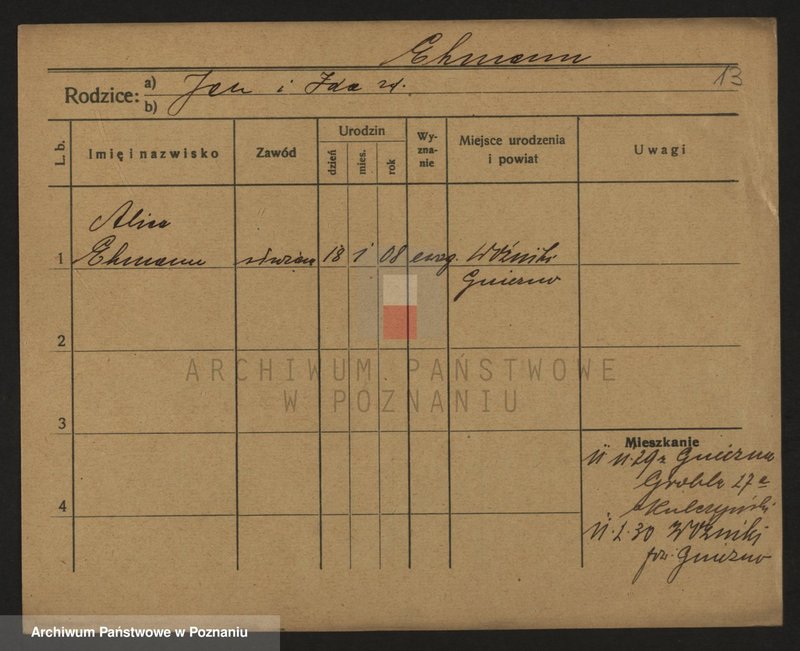 Ehmann
13
Rodzice: a) b) Jan i Ida
L. b. Imię i nazwisko Zawód Urodzin dzień mies. rok Wy-zna-nie Miejsce urodzenia i powiat Uwagi
Alice
1 Ehmann 18 1 08 ewag. Woźniki
Gniezno
2
ARCHIWUM PAŃSTWOWE
W POZNANIU
3
Mieszkanie
11.29 z Gniezna
Grobla 27a
Kulczyński
4
30 Woźniki
Gniezno
Archiwum Państwowe w Poznaniu